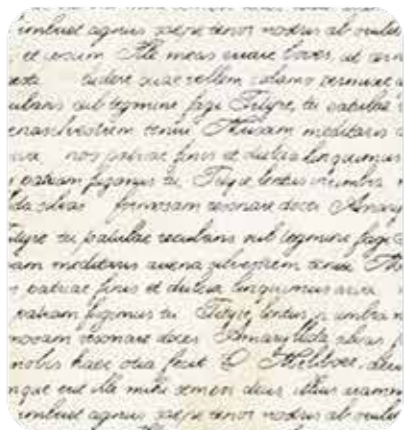 imbuet agnus saepe tener nostris ab
et ipsum Ille meas errare boves, ut
ludere quae vellem calamo permisit a
ubans sub tegmine fagi Tityre, tu patulae r
silvestrem tenui Musam meditaris a
nos patriae finis et dulcia linquimus
patriam fugimus tu, Tityre lentus in umbra
da silvas formosam resonare doces Amary
Tityre tu patulae recubans sub tegmine fagi
am meditaris avena silvestrem tenui M
patriae finis et dulcia linquimus arva
patriam fugimus tu Tityre, lentus in umbra
mosam resonare doces Amaryllida silvas, f
nobis haec otia fecit O Meliboee, deu
mque erit ille mihi semper deus illius aram
imbuet agnus saepe tener nostris ab